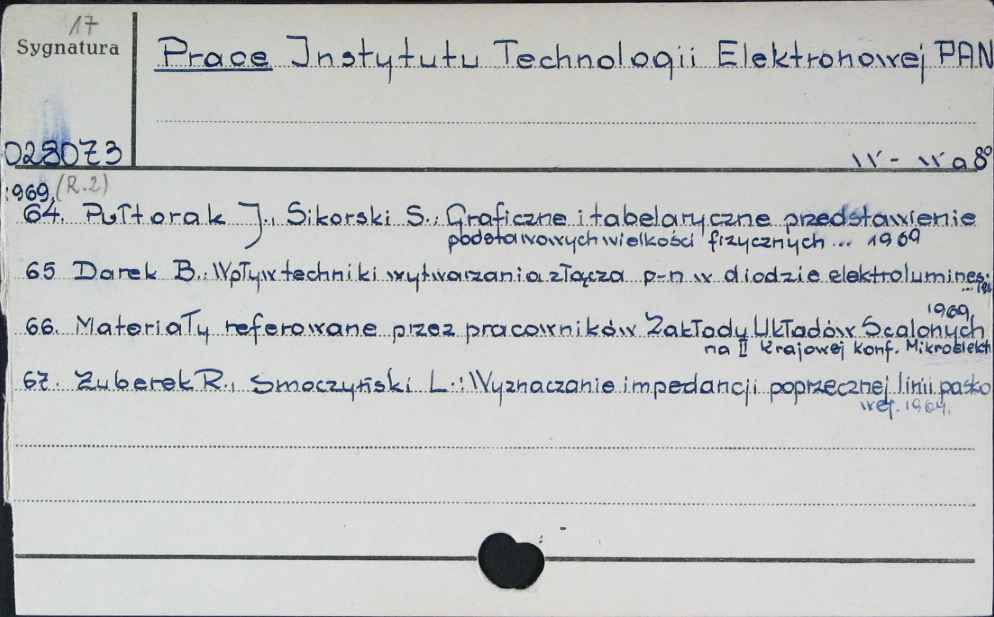 17
Sygnatura
Prace Instytutu Technologii Elektronowej PAN
028073
W-wa 8°
1969 (R.2)
64. Pułtorak J., Sikorski S.: Graficzne i tabelaryczne przedstawienie
podstawowych wielkości fizycznych ... 1969
65 Darek B.: Wpływ techniki wytwarzania złącza p-n w diodzie elektrolumines.
66. Materiały referowane przez pracowników Zakładu Układów Scalonych
1969,
na II Krajowej Konf. Mikroelekt
67. Zuberek R., Smoczyński L.: Wyznaczanie impedancji poprzecznej linii pasko
wej. 1969.